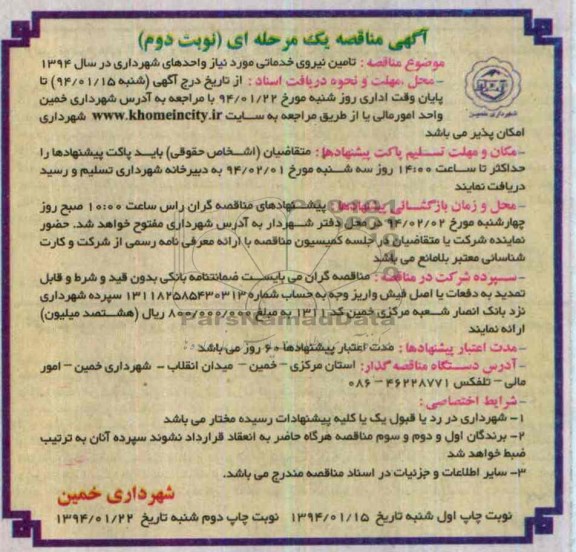 آگهی مناقصه یک مرحله ای (نوبت دوم)
موضوع مناقصه : تامین نیروی خدماتی مورد نیاز واحدهای شهرداری در سال ۱۳۹۴
- محل ،مهلت و نحوه دریافت اسناد : از تاریخ درج آگهی (شنبه ۹۴/۰۱/۱۵) تا
پایان وقت اداری روز شنبه مورخ ۹۴/۰۱/۲۲ با مراجعه به آدرس شهرداری خمین
واحد امورمالی یا از طریق مراجعه به سایت www.khomeincity.ir شهرداری
شهرداری خمین
امکان پذیر می باشد
- مکان و مهلت تسلیم پاکت پیشنهادها : متقاضیان (اشخاص حقوقی) باید پاکت پیشنهادها را
حداکثر تا ساعت ۱۴:۰۰ روز سه شنبه مورخ ۹۴/۰۲/۰۱ به دبیرخانه شهرداری تسلیم و رسید
دریافت نمایند
- محل و زمان بازگشائی پیشنهادها : پیشنهادهای مناقصه گران راس ساعت ۱۰:۰۰ صبح روز
چهارشنبه مورخ ۹۴/۰۲/۰۲ در محل دفتر شهردار به آدرس شهرداری مفتوح خواهد شد. حضور
نماینده شرکت یا متقاضیان در جلسه کمیسیون مناقصه با ارائه معرفی نامه رسمی از شرکت و کارت
شناسائی معتبر بلامانع می باشد
- سپرده شرکت در مناقصه : مناقصه گران می بایست ضمانتنامه بانکی بدون قید و شرط و قابل
تمدید به دفعات یا اصل فیش واریز وجه به حساب شماره ۱۳۱۱۸۲۵۸۵۴۳۰۳۱۳ سپرده شهرداری
نزد بانک انصار شعبه مرکزی خمین کد ۱۳۱۱ به مبلغ ۸۰۰/۰۰۰/۰۰۰ ریال (هشتصد میلیون)
ParsNamadData
ارائه نمایند
- مدت اعتبار پیشنهادها : مدت اعتبار پیشنهادها ۶۰ روز می باشد
- آدرس دستگاه مناقصه گذار: استان مرکزی - خمین - میدان انقلاب - شهرداری خمین - امور
مالی - تلفکس ۴۶۲۲۸۷۷۱ - ۰۸۶
- شرایط اختصاصی :
۱- شهرداری در رد یا قبول یک یا کلیه پیشنهادات رسیده مختار می باشد
۲- برندگان اول و دوم و سوم مناقصه هرگاه حاضر به انعقاد قرارداد نشوند سپرده آنان به ترتیب
ضبط خواهد شد
۳- سایر اطلاعات و جزئیات در اسناد مناقصه مندرج می باشد.
شهرداری خمین
نوبت چاپ اول شنبه تاریخ ۱۳۹۴/۰۱/۱۵ نوبت چاپ دوم شنبه تاریخ ۱۳۹۴/۰۱/۲۲